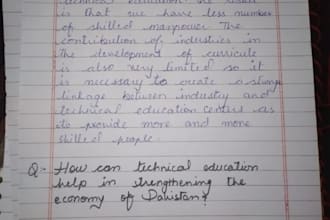 technical education the result
is that we have less number
of skilled manpower the
contribution of industries in
the development of curricule
is also very limited so it
is necessary to create a strong
linkage between industry and
technical education centers as
its provide more and more
skilled people.
Q:- How can technical education
help in strengthening the
economy of Pakistan?